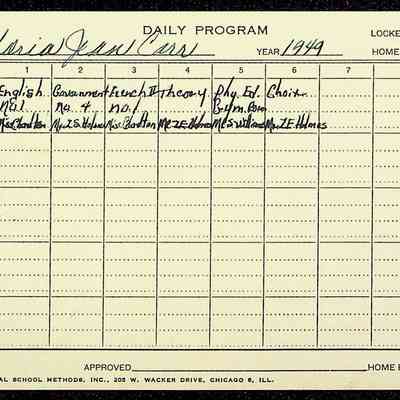 DAILY PROGRAM
LOCKE
oria Jean Carr YEAR 1949 HOME
1 2 3 4 5 6 7
English Government French II Theory Phy. Ed. Choir
No. 1 No. 4 no. 1 Gym. Room
Miss Charlton Mr. Z.S. Holmes Miss Charlton Mr. Z.E. Holmes Mr. S. Williams Mr. Z.E. Holmes
APPROVED HOME R
AL SCHOOL METHODS, INC., 205 W. WACKER DRIVE, CHICAGO 6, ILL.